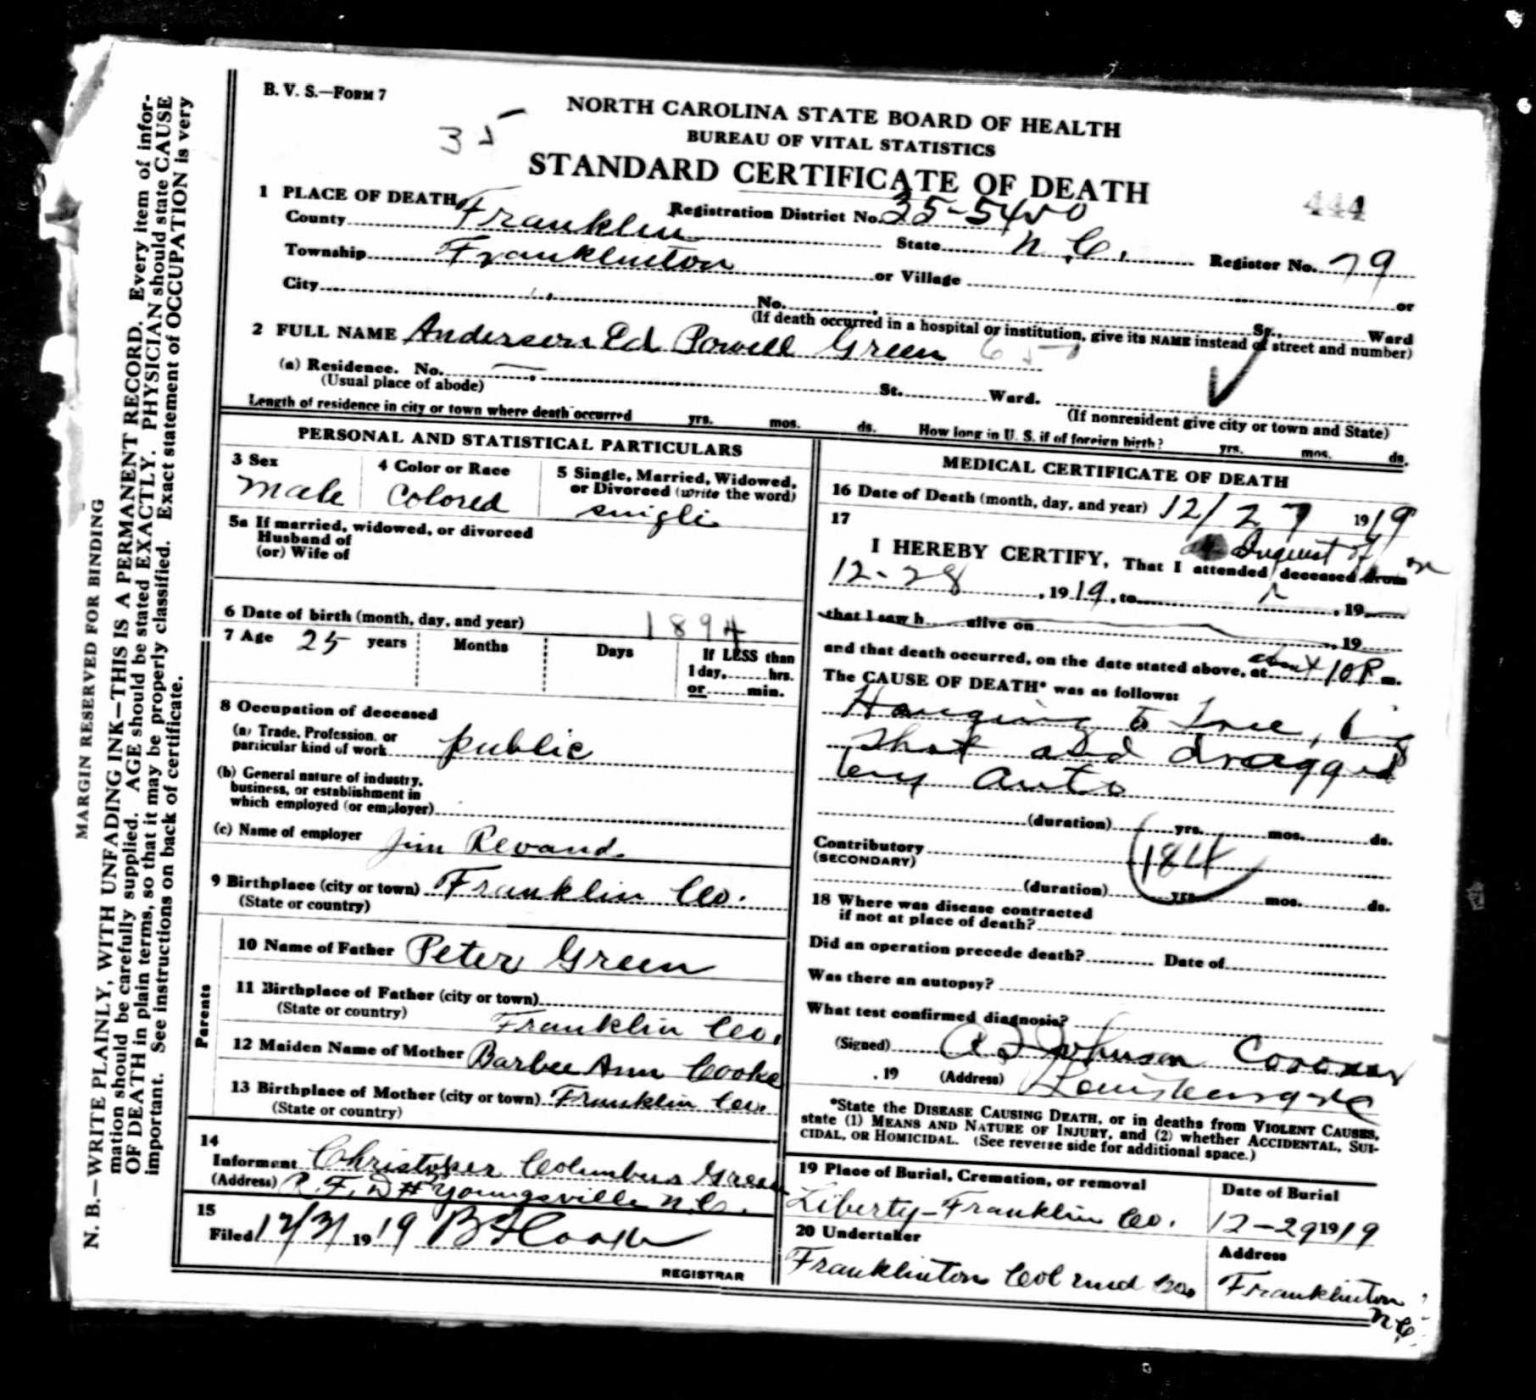 B. V. S.—FORM 7
35
NORTH CAROLINA STATE BOARD OF HEALTH
BUREAU OF VITAL STATISTICS
STANDARD CERTIFICATE OF DEATH
444
1 PLACE OF DEATH
Registration District No. 35-5450
County Franklin State N.C. Register No. 79
Township Franklinton or Village or
City No. St., Ward
(If death occurred in a hospital or institution, give its NAME instead of street and number)
2 FULL NAME Anderson Ed Powell Green
(a) Residence. No. St. Ward.
(Usual place of abode) (If nonresident give city or town and State)
Length of residence in city or town where death occurred yrs. mos. ds. How long in U. S. if of foreign birth? yrs. mos. ds.
PERSONAL AND STATISTICAL PARTICULARS
3 Sex 4 Color or Race 5 Single, Married, Widowed, or Divorced (write the word)
male Colored single
5a If married, widowed, or divorced
Husband of
(or) Wife of
6 Date of birth (month, day, and year) 1894
7 Age 25 years Months Days If LESS than
1 day, hrs.
or min.
8 Occupation of deceased
(a) Trade, Profession, or
particular kind of work public
(b) General nature of industry,
business, or establishment in
which employed (or employer)
(c) Name of employer Jim
9 Birthplace (city or town) Franklin Co.
(State or country)
Parents
10 Name of Father Peter Green
11 Birthplace of Father (city or town)
(State or country) Franklin Co.
12 Maiden Name of Mother Barbee Ann Cooke
13 Birthplace of Mother (city or town) Franklin Co.
(State or country)
14
Informant Christopher Columbus Green
(Address) R.F.D # Youngsville N.C.
15
Filed 12/31 1919
REGISTRAR
MEDICAL CERTIFICATE OF DEATH
16 Date of Death (month, day, and year) 12/27 1919
17
Inquest
I HEREBY CERTIFY, That I attended deceased from on
12-28, 1919, to , 19
that I saw h alive on , 19
and that death occurred, on the date stated above, at about 10 P m.
The CAUSE OF DEATH* was as follows:
Hanging to Tree, being
shot and dragged
by auto
(duration) yrs. mos. ds.
Contributory 184
(SECONDARY)
(duration) yrs. mos. ds.
18 Where was disease contracted
if not at place of death?
Did an operation precede death? Date of
Was there an autopsy?
What test confirmed diagnosis?
(Signed) Johnson Coroner
, 19 (Address) Louisburg NC
*State the DISEASE CAUSING DEATH, or in deaths from VIOLENT CAUSES,
state (1) MEANS AND NATURE OF INJURY, and (2) whether ACCIDENTAL, SUI-
CIDAL, OR HOMICIDAL. (See reverse side for additional space.)
19 Place of Burial, Cremation, or removal Date of Burial
Liberty-Franklin Co. 12-29 1919
20 Undertaker Address
Franklinton Col Co. Franklinton N.C.
MARGIN RESERVED FOR BINDING
N. B.—WRITE PLAINLY, WITH UNFADING INK—THIS IS A PERMANENT RECORD. Every item of infor-
mation should be carefully supplied. AGE should be stated EXACTLY. PHYSICIAN should state CAUSE
OF DEATH in plain terms, so that it may be properly classified. Exact statement of OCCUPATION is very
important. See instructions on back of certificate.